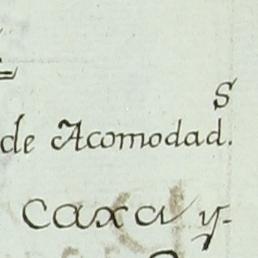 de Acomodad.s
caxa y-